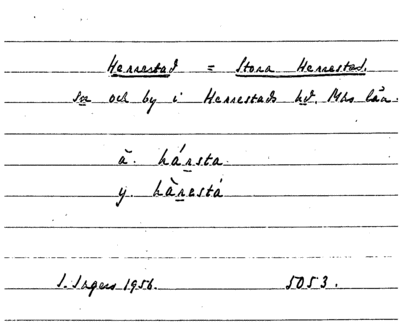 Herrestad = Stora Herrestad.
sn och by i Herrestads hd. Mhs län.
ä. hársta
y. hàrestá
S. Ingers 1956. 5053.